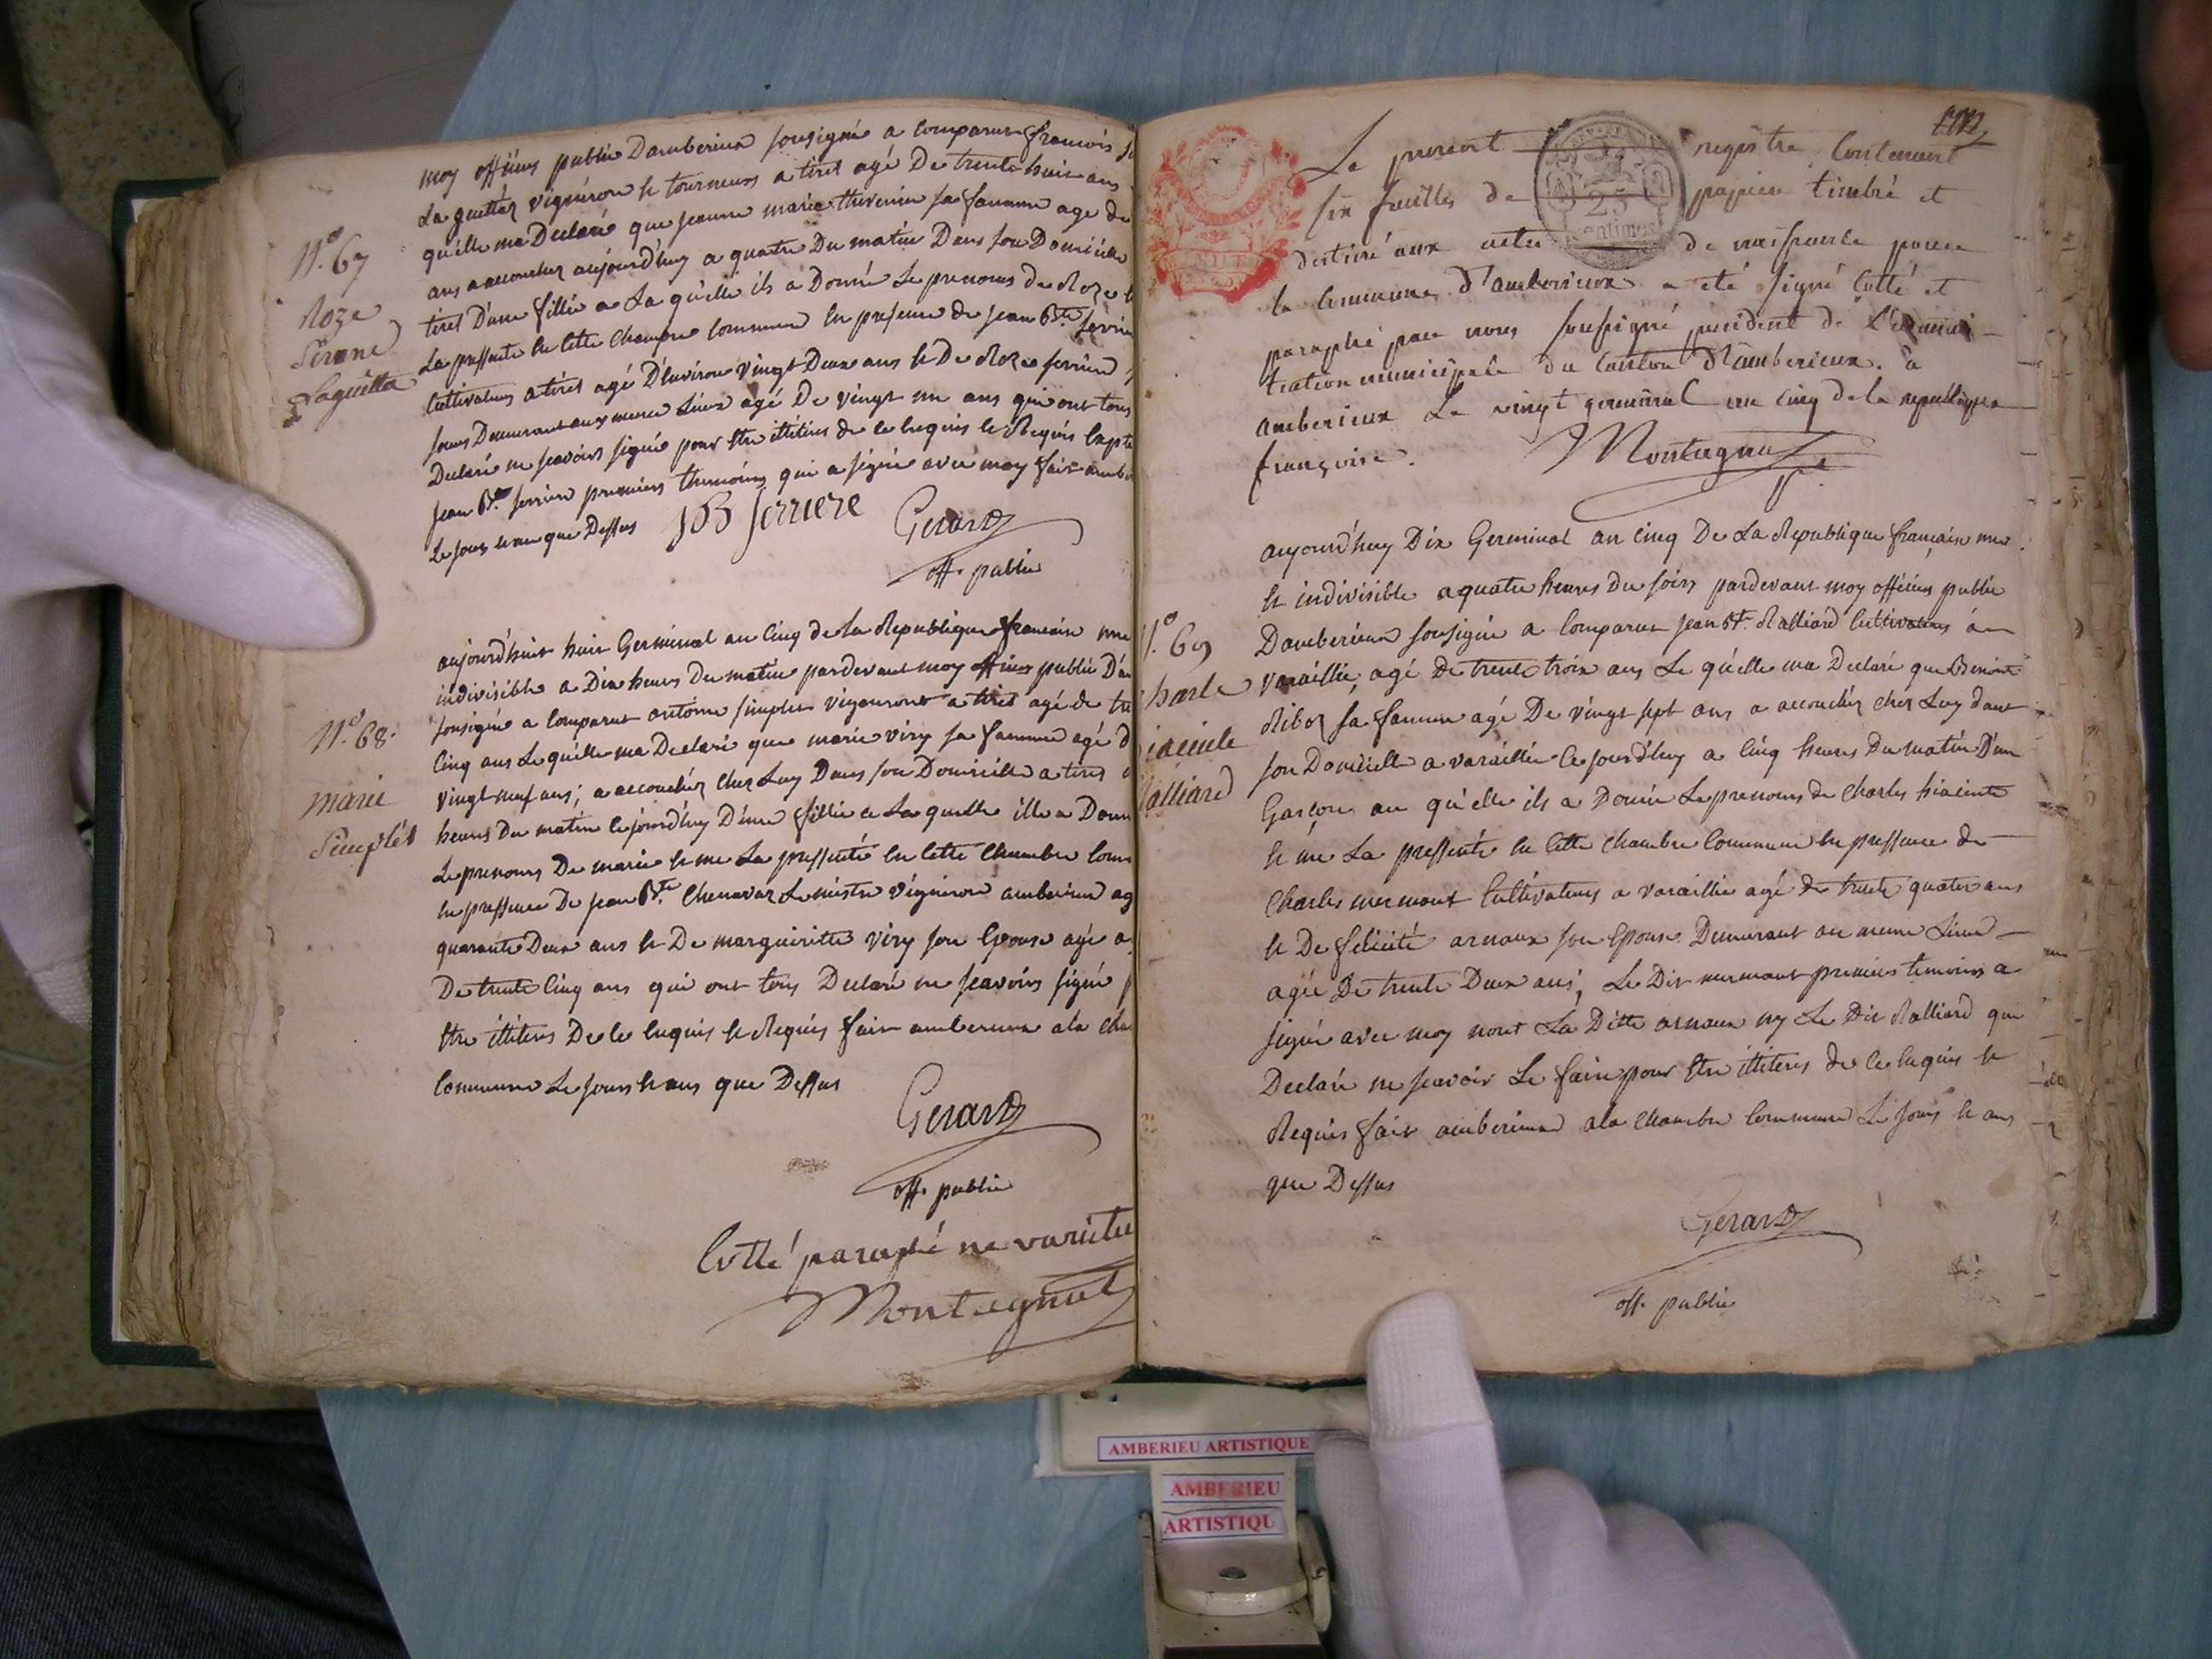 moy officiers public Dambérieux sousigné a comparut francois
La guettaz vigneron et tourneurs a tiret agé De trente huit ans
qu'elle ma Declaré que jeanne marie thevenin sa famme age de
ans a accouchez aujourd'huy a quatre Du matin Dans son Domicille
tiret D'une fillie a La qu'elle ils a Donné Le prenoms de Roze
La pressenté en cette chambre commune en presence de jean Bte
cultivateurs a tiret agé D'environ vingt Deux ans et De Roze ferrière
Demeurant aux meme Lieux agé De vingt un ans qui ont tous
Declaré ne scavoirs signé pour etre illitéres de ce enquis et Requis
jean Bte premiers themoins qui a signé avec moy fait
Le jour et an que Dessus
JB ferriere
Gerard
off. public
N.º 67
Roze
Laguetta
aujourd'huit huit Germinal an Cinq de la Republique francaise une
indivisible a Dix heures Du matin pardevant moy officiers public
sousigné a comparut antoine simplet vigneront a tiret agé de
Cinq ans Le qu'elle ma Declaré que marie viry sa famme agé
vingt neuf ans; a accouchez chez Luy Dans son Domicille a tiret
heures Du matin ce jourd'huy D'une fillie a La quelle ille a
Le prenoms De marie et me La pressenté en cette chambre
en pressence De jean Bte. Chenavaz Le mistre vigneron amberieux
quarante Deux ans et De marguiritte viry son Epouse agé
De trente Cinq ans qui ont tous Declaré ne scavoirs signé
etre illitéres De ce enquis et Requis fait amberieux ala
commune Le jours et ans que Dessus
Gerard
off. public
N.º 68.
marie
Simplét
Cotté paraphé ne
Montagnat
Le present registre Contenant
six feuilles de papier timbré et
25
centimes
destiné aux actes de naissance pour
la Commune d'amberieux a eté signé Cotté et
paraphé par nous soussigné président de
tration municipale du Canton d'amberieux. a
amberieux Le vingt germinal an cinq de la republique
françoise.
Montagnat
aujourd'huy Dix Germinal an cinq De La Republique francaise une
et indivisible a quatre heures Du soirs pardevant moy officiers public
Damberieux sousigné a comparut jean Bte. Ralliard cultivateurs a
varaillie, agé De trente trois ans Le qu'elle ma Declaré que Benoite
Riboz sa famme agé De vingt sept ans a accouchez chez Luy dans
son Domicille a varaillie Ce jourd'huy a Cinq heures Du matin D'un
Garcon au qu'elle ils a Donné Le prenoms de Charles hiacinte
et me La pressenté en cette chambre Commune en pressence de
Charles mermont Cultivateurs a varaillie agé de trente quatre ans
et De félicité arnaux son Epouse Demurant au meme Lieux
agée De trente Deux ans, Le Dit mermont premiers temoins a
signé avec moy nont La Ditte arnaux ny Le Dit Ralliard qui
Declaré ne scavoir Le faire pour etre illiteres de ce enquis et
Requis fait amberieux ala chambre Commune Le jours et ans
que Dessus
Gerard
off. public
N.º 69
harle
iacinte
alliard
AMBERIEU ARTISTIQUE
AMBERIEU
ARTISTIQU